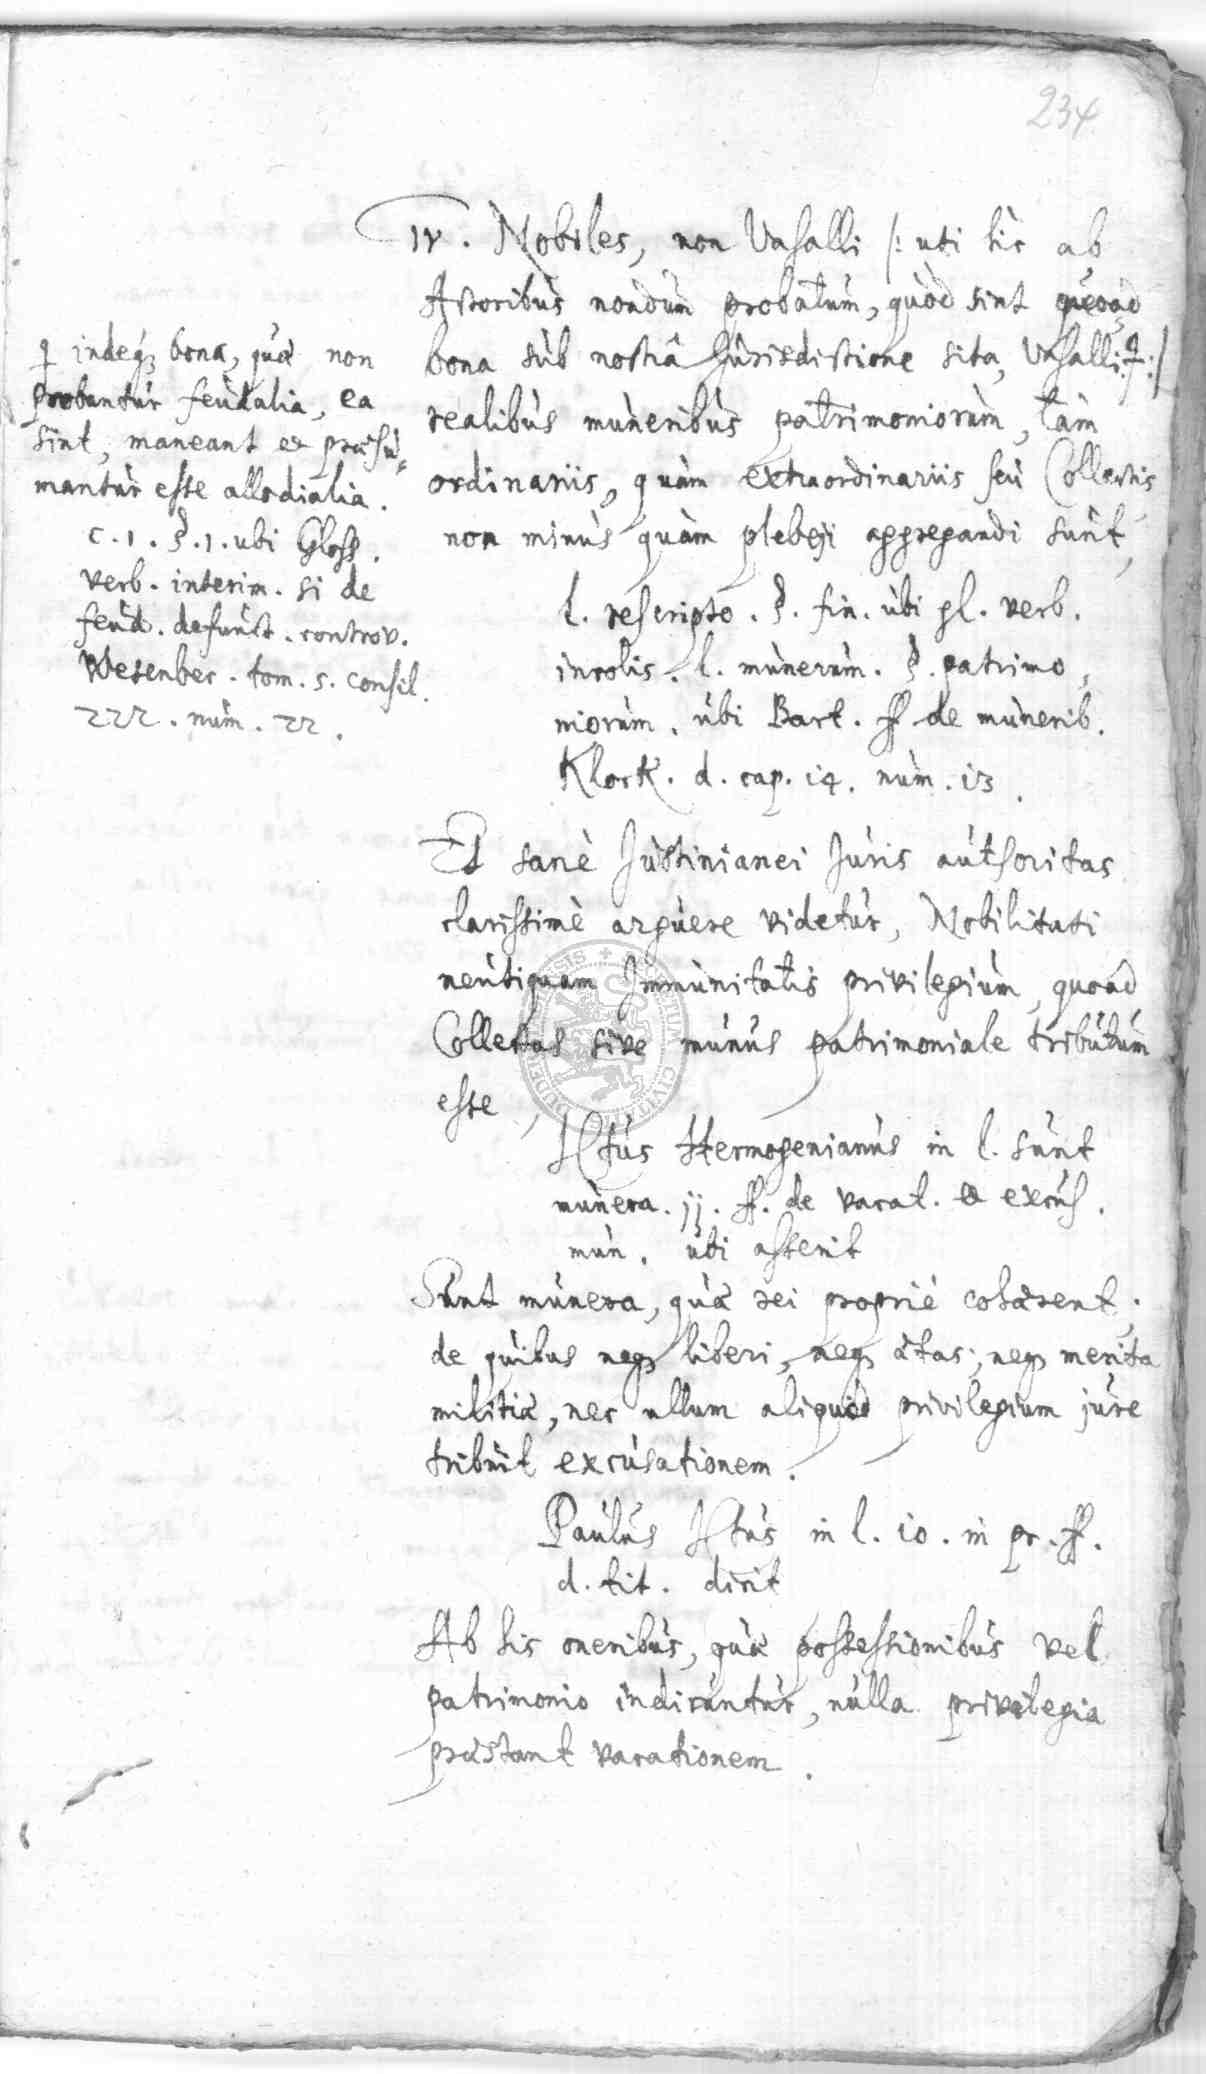 234
IV. Nobiles, non Vasalli /: uti hìc ab
Actoribùs nondùm probatum, quòd sint quoad
bona sùb nostrâ Jùrisdictione sita, Vasalli. :/
realibùs mùneribùs patrimoniorùm, tàm
ordinariis, quàm extraordinariis seù Collectis
non minùs quàm plebeji aggregandi sùnt,
l. rescripto. §. fin. ùbi gl. verb.
incolis. l. mùnerùm. §. patrimo,
niorùm. ùbi Bart. ff de mùnerib.
Klock. d. cap. 14. nùm. 13.
indeq; bona, quæ non
probantùr feùdalia, ea
sint, maneant et præsù,
mantùr esse allodialia.
c. 1. §. 1. ubi Gloss.
verb. interim. si de
feùd. defùnct. controv.
Wesenbec. tom. 5. consil.
222. nùm. 22.
Et sanè Jùstinianei Jùris aùthoritas
clarissimè argùere videtùr, Nobilitati
neùtiquam Immùnitatis privilegiùm, quoad
Collectas sive mùnùs patrimoniale tribùtùm
esse,
JCtùs Hermogenianùs in l. sùnt
mùnera. jj. ff. de vacat. et excùs.
mùn. ùbi asserit
Sùnt mùnera, quæ rei propriè cohærent,
de quibus neq; liberi, neq; ætas, neq; merita
militiæ, nec ullum aliquod privilegium jùre
tribùit excùsationem.
Paùlùs JCtùs in l. 10. in pr. ff.
d. tit. dicit
Ab his oneribùs, quæ possessionibùs vel
patrimonio indicùntùr, nùlla privilegia
præstant vacationem.